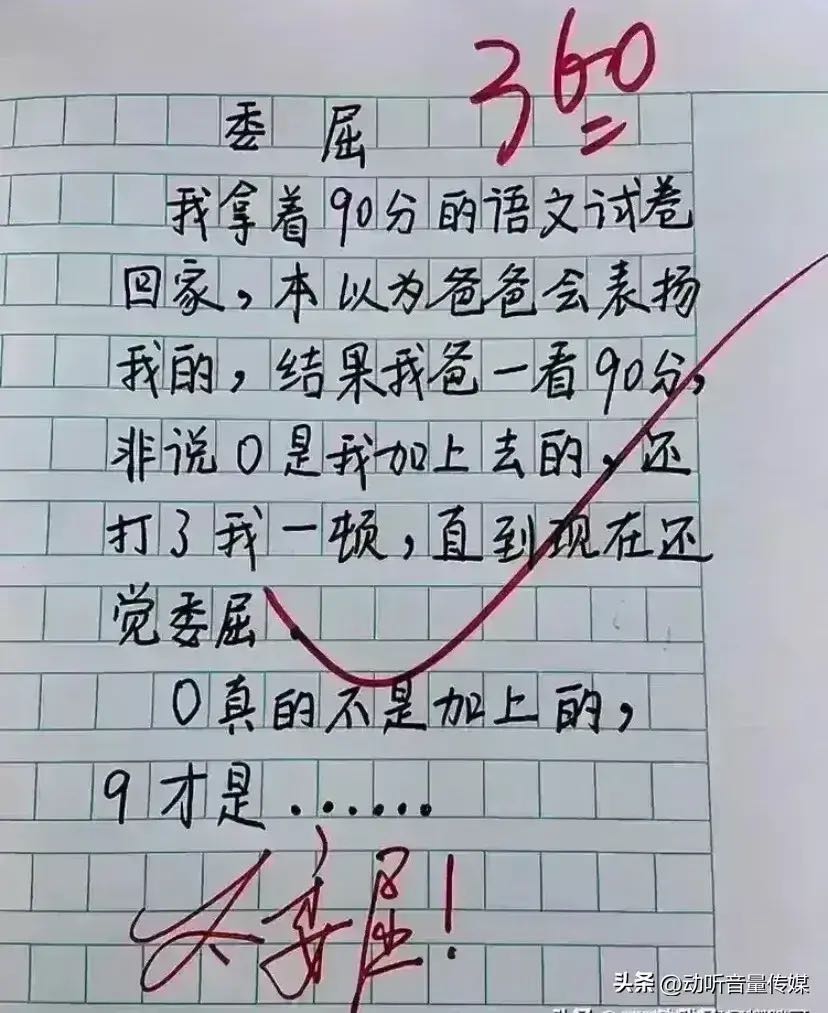 360
委屈
我拿着90分的语文试卷
回家，本以为爸爸会表扬
我的，结果我爸一看90分，
非说0是我加上去的，还
打了我一顿，直到现在还
觉委屈.
0真的不是加上的，
9才是......
太委屈！
头条 @动听音量传媒